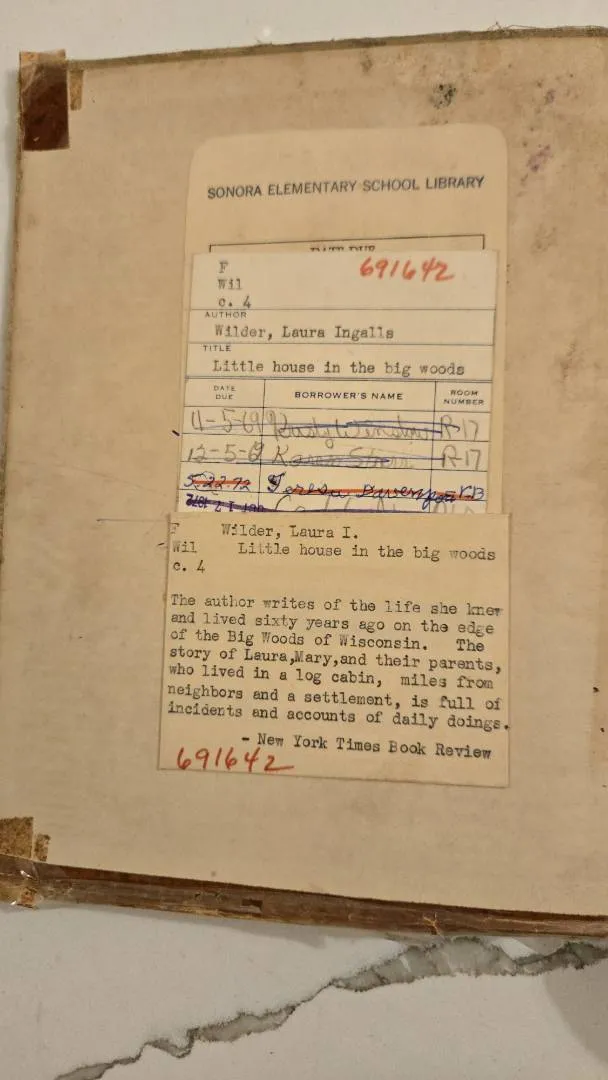 SONORA ELEMENTARY SCHOOL LIBRARY
DATE DUE
F 691642
Wil
c. 4
AUTHOR
Wilder, Laura Ingalls
TITLE
Little house in the big woods
DATE DUE BORROWER'S NAME ROOM NUMBER
11-5-69 R-17
12-5-69 Karen R-17
5-22-72 Teresa Davenport
OCT 17 1972
F Wilder, Laura I.
Wil Little house in the big woods
c. 4
The author writes of the life she knew
and lived sixty years ago on the edge
of the Big Woods of Wisconsin. The
story of Laura,Mary,and their parents,
who lived in a log cabin, miles from
neighbors and a settlement, is full of
incidents and accounts of daily doings.
- New York Times Book Review
691642